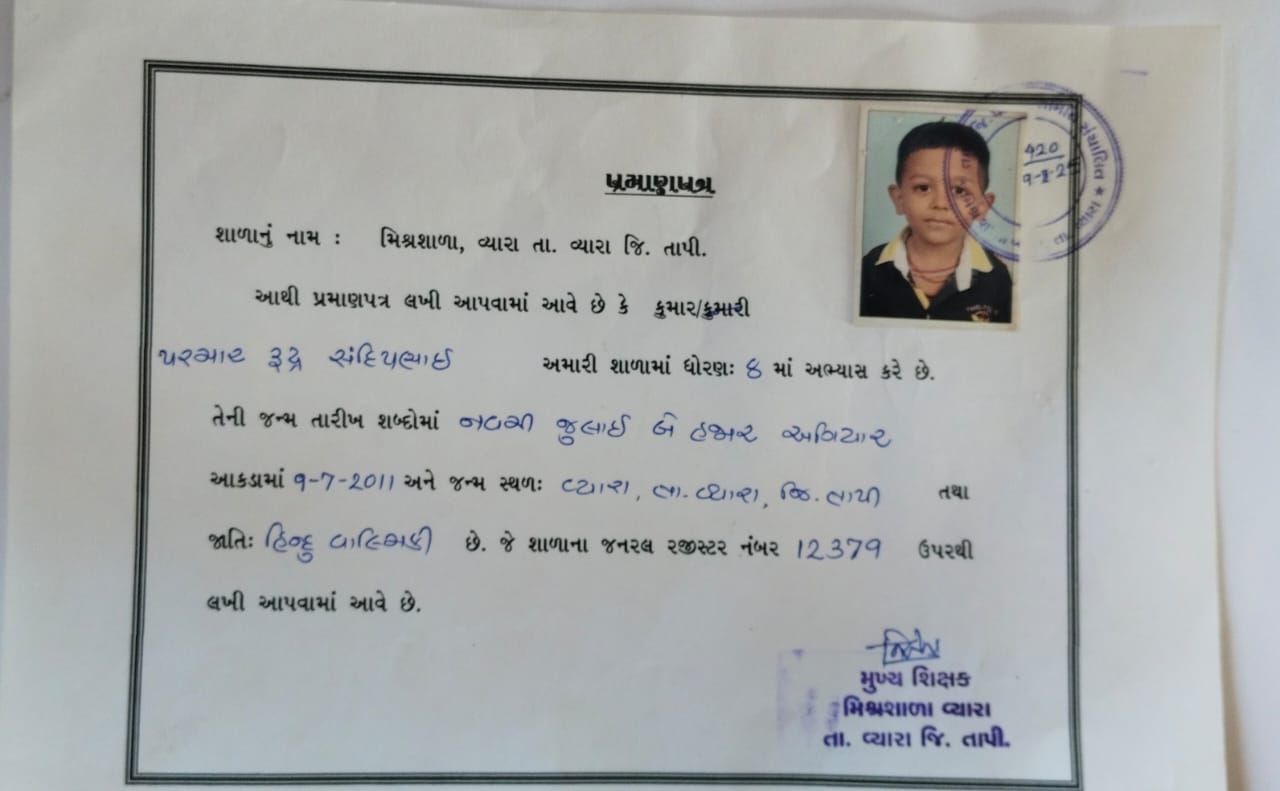 પ્રમાણપત્ર
શાળાનું નામ : મિશ્રશાળા, વ્યારા તા. વ્યારા જિ. તાપી.
આથી પ્રમાણપત્ર લખી આપવામાં આવે છે કે કુમાર/કુમારી
પરમાર રૂદ્ર સંદિપભાઈ અમારી શાળામાં ધોરણઃ ૬ માં અભ્યાસ કરે છે.
તેની જન્મ તારીખ શબ્દોમાં નવમી જુલાઈ બે હજાર અગિયાર
આકડામાં ૧-7-2011 અને જન્મ સ્થળઃ વ્યારા, તા. વ્યારા, જિ. તાપી તથા
જાતિઃ હિન્દુ વાલ્મિકી છે. જે શાળાના જનરલ રજીસ્ટર નંબર 12379 ઉપરથી
લખી આપવામાં આવે છે.
સંચાલિત
મુખ્ય શિક્ષક
મિશ્રશાળા વ્યારા
તા. વ્યારા જિ. તાપી.